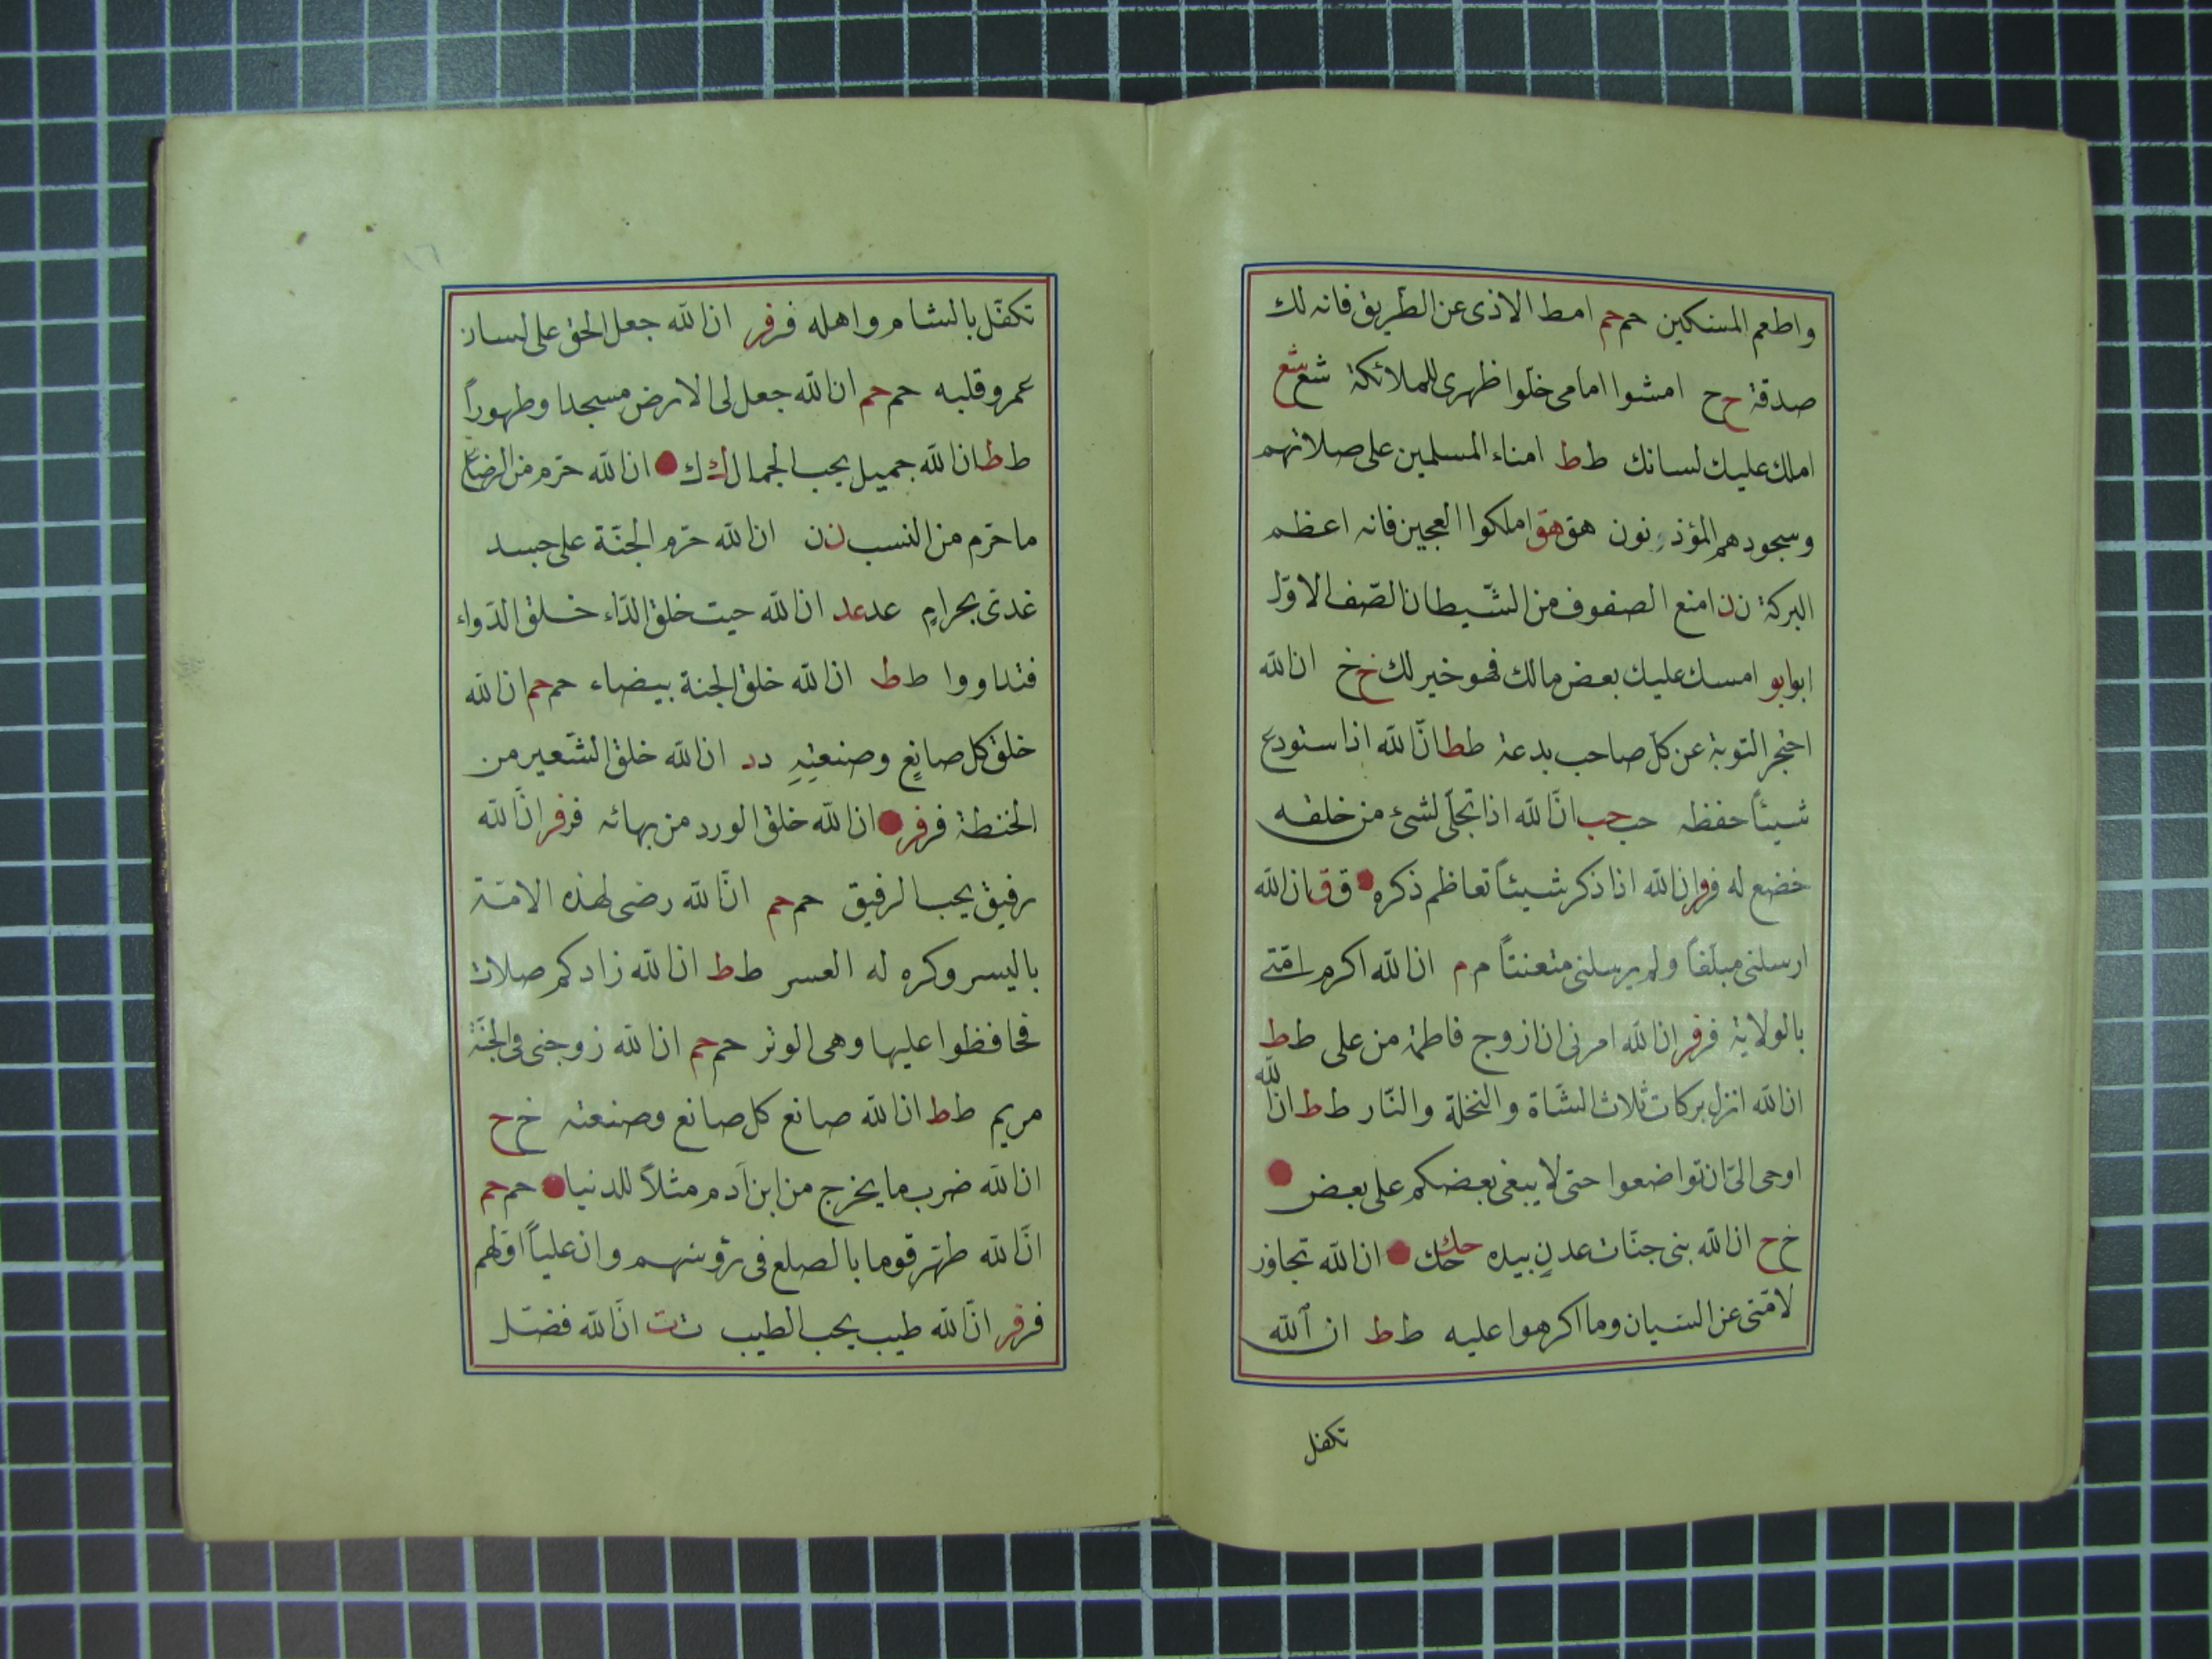 واطعم المسكين حم حم امط الاذى عن الطريق فانه لك
صدقة ح ح امشوا امامى خلوا ظهرى للملائكة شع شع
املك عليك لسانك ط ط امناء المسلمين على صلاتهم
وسجودهم المؤذنون هق هق املكوا العجين فانه اعظم
البركة ن ن امنع الصفوف من الشيطان الصف الاول
ابو ابو امسك عليك بعض مالك فهو خير لك خ خ ان الله
احتجر التوبة عن كل صاحب بدعة ط ط ان الله اذا ستودع
شيئاً حفظه حب حب ان الله اذا تجلى لشئ من خلقه
خضع له فر فر ان الله اذا ذكر شيئاً تعاظم ذكره ق ق ان الله
ارسلنى مبلغاً ولم يرسلنى متعنتاً م م ان الله اكرم امتى
بالولاية فر فر ان الله امرنى ان ازوج فاطمة من على ط ط
ان الله انزل بركات ثلاث الشاة والنخلة والنار ط ط ان الله
اوحى الى ان تواضعوا حتى لا يبغى بعضكم على بعض
خ ح ان الله بنى جنات عدن بيده حك حك ان الله تجاوز
لامتى عن النسيان وما اكرهوا عليه ط ط ان الله
تكفل
١٦
تكفل بالشام واهله فر فر ان الله جعل الحق على لسان
عمر وقلبه حم حم ان الله جعل لى الارض مسجدا وطهوراً
ط ط ان الله جميل يحب الجمال ك ك ان الله حرم من الرضاع
ما حرم من النسب ن ن ان الله حرم الجنة على جسد
غدى بحرامٍ عد عد ان الله حيت خلق الداء خلق الدواء
فتداووا ط ط ان الله خلق الجنة بيضاء حم حم ان الله
خلق كل صانعٍ وصنعتهِ د د ان الله خلق الشعير من
الحنطة فر فر ان الله خلق الورد من بهائه فر فر ان الله
رفيق يحب الرفيق حم حم ان الله رضى لهذه الامة
باليسر وكره له العسر ط ط ان الله زادكم صلات
فحافظوا عليها وهى الوتر حم حم ان الله زوجنى فى الجنة
مريم ط ط ان الله صانع كل صانع وصنعته خ ح
ان الله ضرب ما يخرج من ابن آدم مثلاً للدنيا حم حم
ان الله طهر قوما بالصلع فى رؤسهم وان علياً اولهم
فر فر ان الله طيب يحب الطيب ت ت ان الله فضل